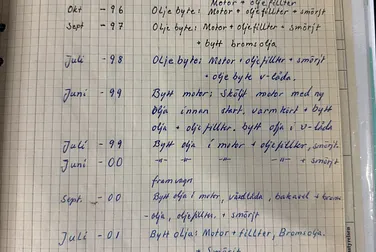 Motor + oljefillter
Okt - 96 Olje byte: Motor + oljefillter + smörjt
Sept - 97 Olje byte: Motor + oljefillter + smörjt
+ bytt bromsolja
Juli - 98 Olje byte: Motor + oljefillter + smörjt
+ olje byte v-låda.
Juni - 99 Bytt motor: Sköljt motor med ny
olja innan start, varmkört + bytt
olja + oljefilter. bytt olja i v-låda
Juli - 99 Bytt olja i motor + oljefillter, smörjt
Juni - 00 -"- -"- -"- -"- + smörjt
framvagn
Sept. - 00 Bytt olja i motor, växellåda, bakaxel + broms
olja, oljefilter. + smörjt
Juli - 01 Bytt olja: Motor + fillter, Bromsolja.
+ Smörjt